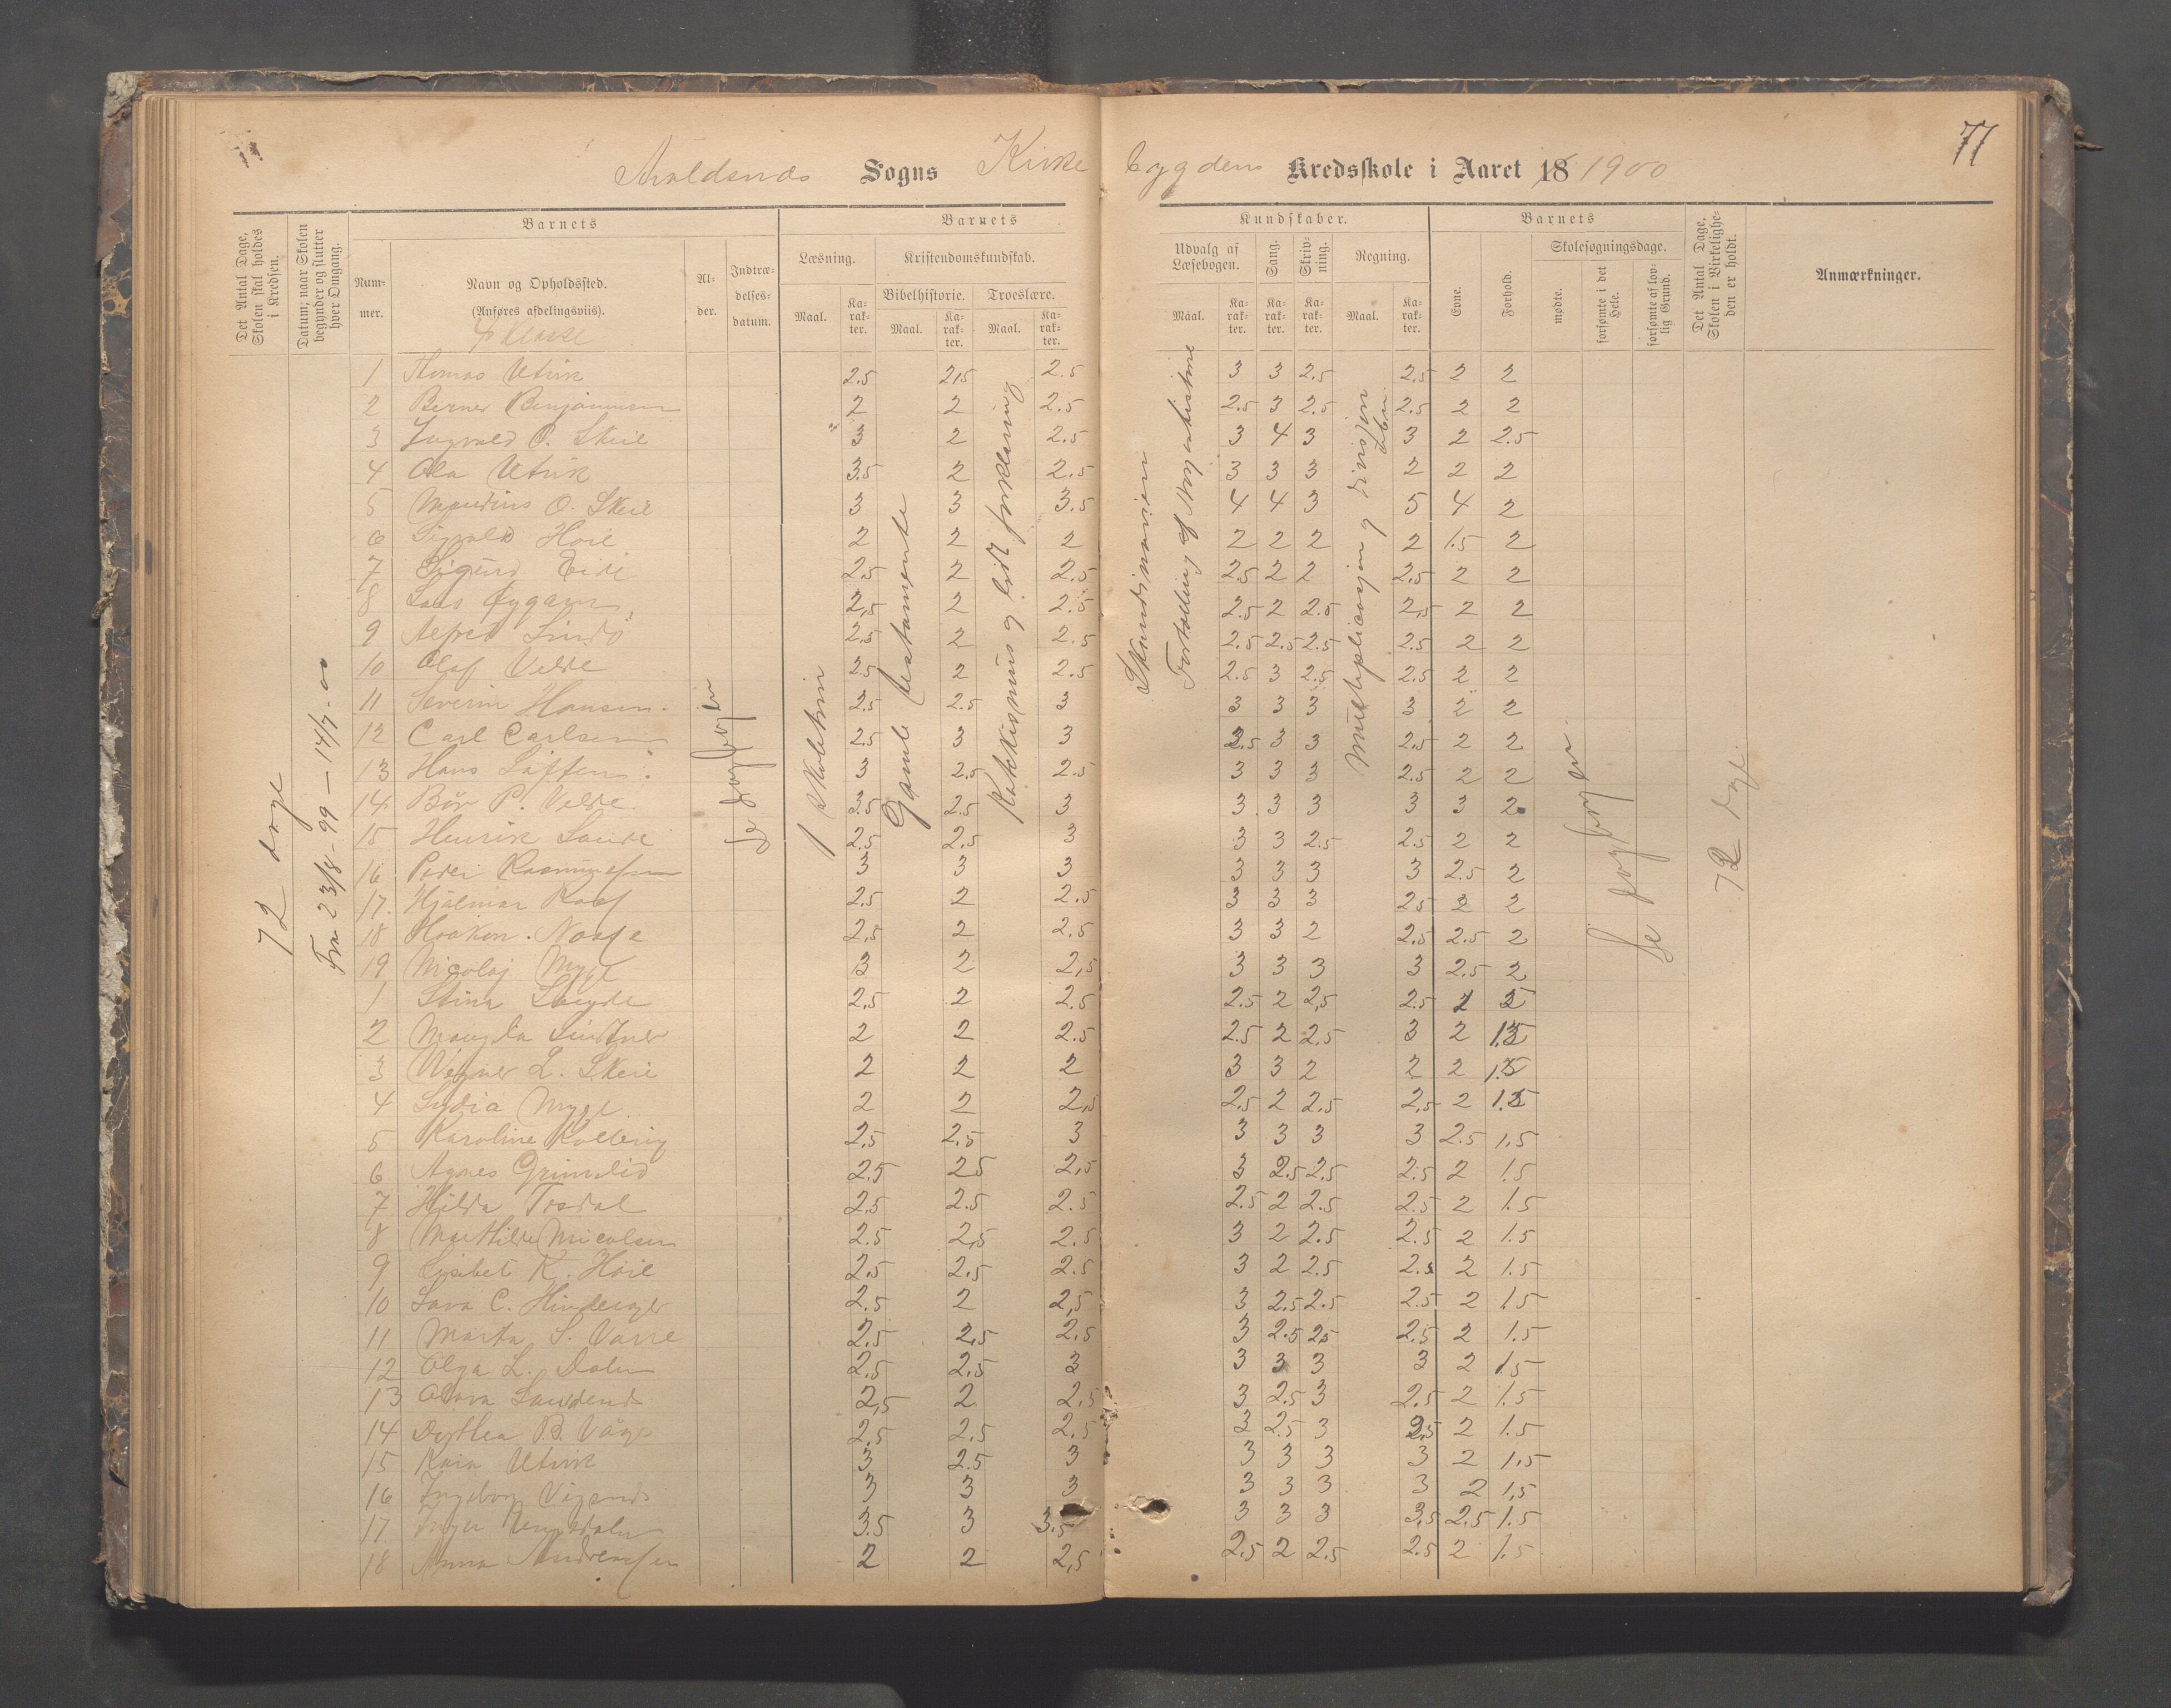 77
Avaldsnes Sogns Kirke bygdens Kredsskole i Aaret 18 1900
Det Antal Dage, Skolen skal holdes i Kredsen.
Datum, naar Skolen begynder og slutter hver Omgang.
Barnets
Nummer.
Navn og Opholdssted.
(Anføres afdelingsviis).
4 klasse
Alder.
Indtrædelsesdatum.
Barnets
Læsning.
Maal.
Karakter.
Kristendomskundskab.
Bibelhistorie.
Maal.
Karakter.
Troeslære.
Maal.
Karakter.
Kundskaber.
Udvalg af Læsebogen.
Maal.
Karakter.
Sang.
Karakter.
Skrivning.
Karakter.
Regning.
Maal.
Karakter.
Barnets
Evne.
Forhold.
Skolesøgningsdage.
mødte.
forsømte i det Hele.
forsømte af lovlig Grund.
Det Antal Dage, Skolen i Virkeligheden er holdt.
Anmærkninger.
72 dage
Fra 23/8-99 – 14/7-00
Se dagbogen
1 skoletrin
Gamle testamente
Katekismus og lidt forklaring
Skandinavien
Fortælling af Norgeshistorie
Multiplicasjon og divisjon
Se dagbogen
72 dage
1 Thomas Utvik 2.5 2,5 2.5 3 3 2.5 2,5 2 2
2 Berner Benjaminsen 2 2 2.5 2.5 3 2.5 2.5 2 2
3 Ingvald O. Skeie 3 2 2.5 3 4 3 3 2 2.5
4 Ola Utvik 3.5 2 2.5 3 3 3 2 2 2
5 Maurius O. Skeie 3 3 3.5 4 4 3 5 4 2
6 Sigvald Hoie 2 2 2 2 2 2 2 1.5 2
7 Sigurd Eide 2.5 2 2.5 2.5 2 2 2,5 2 2
8 Lars Øygarn 2,5 2 2.5 2.5 2 2.5 2,5 2 2
9 Alfred Lindø 2.5 2 2.5 2.5 2.5 2.5 2.5 2 2
10 Olaf Velde 2.5 2 2.5 2.5 3 2.5 2.5 2 2
11 Severin Hansen 2.5 2.5 3 3 3 3 3 2 2
12 Carl Carlsen 2.5 3 3 2.5 3 3 2.5 2 2
13 Hans 3 2.5 2.5 3 3 3 2.5 2 2
14 Bår P. Velde 3.5 2.5 3 3 3 3 3 3 2
15 Henrik Sande 2.5 2,5 3 3 3 2.5 2.5 2 2
16 Peder Rasmussen 3 3 3 3 3 3 3 2.5 2
17 Hjalmar 2.5 2 2.5 3 3 3 2.5 2 2
18 Haakon 2,5 2 2.5 3 3 2 2.5 2.5 2
19 Nicolaj Myge 3 2 2,5 3 3 3 3 2.5 2
1 Stina 2,5 2 2.5 2.5 2 2,5 2.5 2
2 Magda Lindtner 2 2 2.5 2.5 2 2,5 3 2 1.5
3 L. Skeie 2 2 2 3 3 2 2 2 1.5
4 Lydia Myge 2 2 2,5 2,5 2 2,5 2,5 2 1.5
5 Karoline 2,5 2,5 3 3 3 3 3 2.5 1.5
6 Agnes Grindlid 2.5 2.5 2,5 3 2.5 2.5 2.5 2 1.5
7 Hilda 2,5 2.5 2.5 2.5 2 2.5 2.5 2 1.5
8 Mathilde Micalsen 2.5 2,5 2.5 3 2 2.5 2.5 2 1.5
9 Lisabet K. Høie 2,5 2,5 2.5 3 2 2.5 2.5 2 1.5
10 Lava C. 2.5 2 2,5 3 2.5 2.5 2.5 2 1.5
11 Marta S. 2,5 2,5 2,5 3 2.5 2.5 2.5 2 1.5
12 Olga L. Dalen 2,5 2,5 3 3 3 3 3 2 1.5
13 2,5 2 2,5 3 2.5 3 2.5 2 1.5
14 Dorthea B. Våge 2,5 2,5 2,5 3 2.5 3 2,5 2 1.5
15 Kaia Utvik 3 2.5 3 3 3 3 3 2 1,5
16 Ingeborg 3 3 3 3 3 3 3 2 1,5
17 Inger 3.5 3 3.5 3 3 3 3,5 2.5 1.5
18 Anna Andreassen 2 2 2,5 2.5 2 2.5 2.5 2 1.5